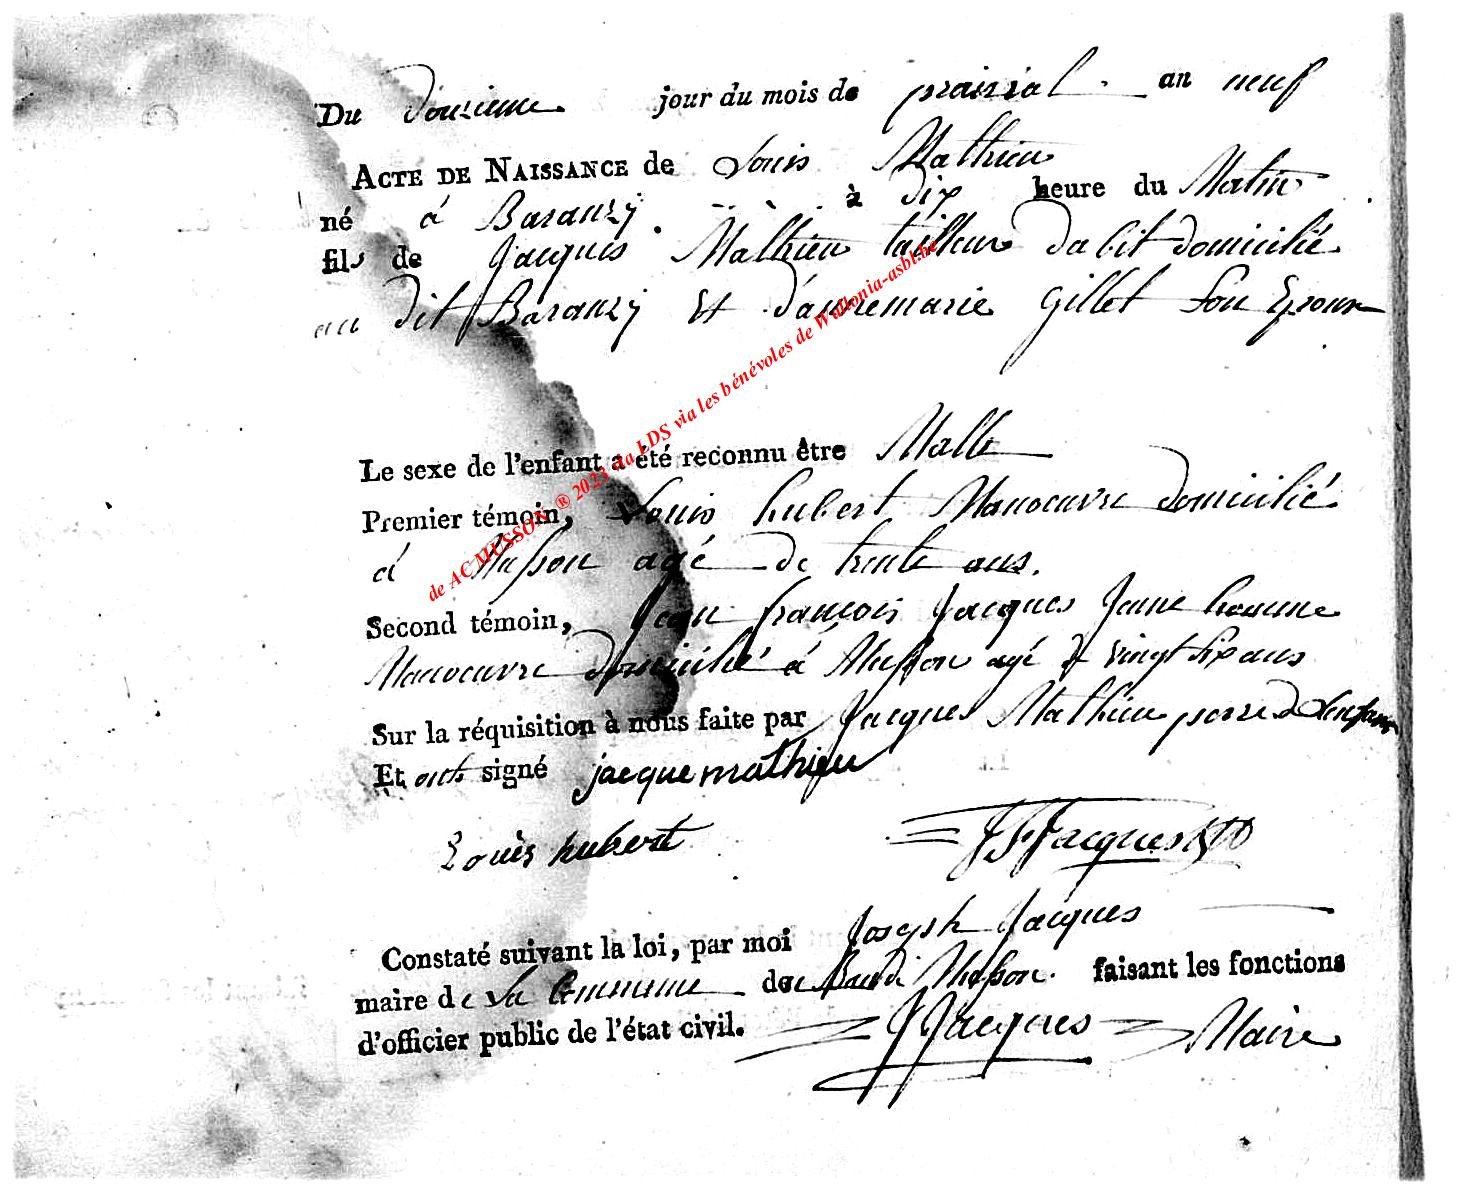 Du douzieme jour du mois de prairial an neuf
ACTE DE NAISSANCE de Louis Mathieu
né á Baranzy à dix heure du Matin
fils de Jacques Mathieu tailleur dabit domicilié
au dit Baranzy et d'annemarie Gillet son Epouse
Le sexe de l'enfant a été reconnu être Malle
Premier témoin, Louis hubert Manoeuvre domicilié
á Musson agé de trente ans.
Second témoin, Jean francois Jacques Jeune homme
Manoeuvre domicilié á Musson agé de vingt six ans
Sur la réquisition à nous faite par Jacques Mathieu perre de lenfant
Et onts signé jacque mathieu
Louis hubert JfJacques
Constaté suivant la loi, par moi Joseph Jacques
maire de La Commune de Musson. faisant les fonctions
d'officier public de l'état civil. JJacques Maire
de AC MUSSON ® 2023 via LDS via les bénévoles de Wallonia-asbl.be